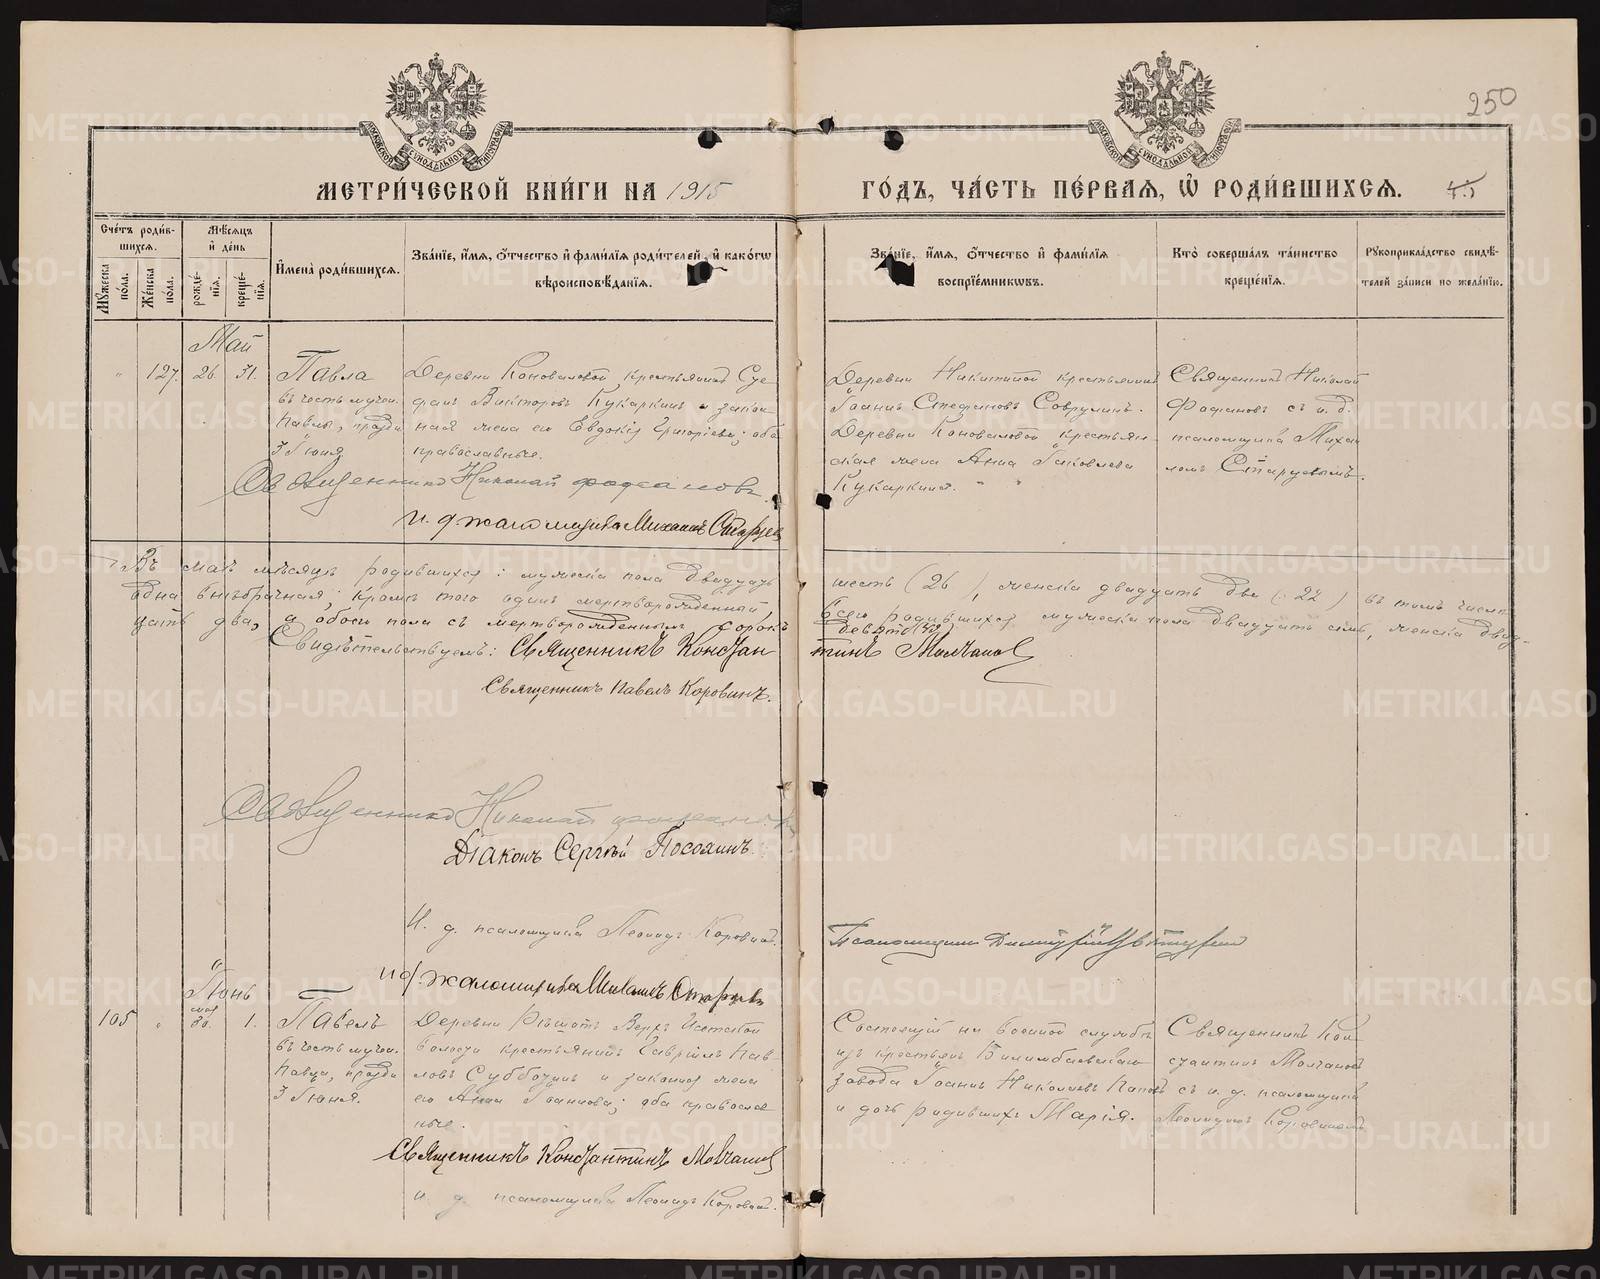 250
МОСКОВСКОЙ СѴНОДАЛЬНОЙ ТИПОГРАФІИ
МОСКОВСКОЙ СѴНОДАЛЬНОЙ ТИПОГРАФІИ
МЕТРИ́ЧЕСКОЙ КНИ́ГИ НА 1915
ГО́ДЪ, ЧА́СТЬ ПЕ́РВАЯ, Ѡ РОДИ́ВШИХСЯ.
Сче́тъ роди́в-
шихся.
Му́жеска по́ла.
Же́нска по́ла.
Мѣ́сяцъ и́ де́нь
рожде́-
нія.
креще́-
нія.
И́мена̀ роди́вшихся.
Зва́ніе, и́мя, о́тчество и́ фами́лія роди́телей, и́ како́гѡ
вѣроисповѣ́данія.
Зва́ніе, и́мя, о́тчество и́ фами́лія
воспріе́мниковъ.
Кто̀ соверша́лъ та́инство
креще́нія.
Рукоприкла́дство свидѣ́-
телей за́писи по жела́нію.
Май
" 127. 26. 31.
Павла
въ честь мучен.
Павлы, праздн
3 Іюня.
Деревни Коноваловой, крестьянинъ Сте
фанъ Викторовъ Кукаркинъ и закон
ная жена его Евдокія Григоріева; оба
православные.
Деревни Никитиной крестьянинъ
Іоаннъ Стефановъ Соврулинъ.
Деревни Коноваловой крестьян-
ская жена Анна Іаковлева
Кукаркина.
Священникъ Николай
съ и. д.
псаломщика Михаи
ломъ Старцевымъ.
Священникъ Николай
и. д. псаломщика Михаилъ Старцевъ
Въ маѣ мѣсяцѣ родившихся: мужеска пола двадцать
шесть (26), женска двадцать два (22) въ томъ числѣ
одна внѣбрачная; кромѣ того одинъ мертворожденный,
Всего родившихся мужеска пола двадцать семь, женска двад-
цать два, а обоего пола съ мертворожденнымъ сорокъ
девять (49)
Свидѣтельствуемъ: Священникъ Констан
тинъ Молчановъ
Священникъ Павелъ Коровинъ.
Священникъ Николай
Діаконъ Сергѣй Посохинъ.
И. д. псаломщика Леонидъ Коровинъ.
Псаломщикъ Димитрій
и д псаломщика Михаилъ Старцевъ
Іюнь
105 " мая 30. 1.
Павелъ
въ честь мучен.
Павла, праздн
3 Іюня.
Деревни Рѣшетъ Верхъ Исетской
волости крестьянинъ Гавріилъ Пав
ловъ Субботинъ и законная жена
его Анна Іоаннова; оба православ
ные.
Состоящій на военной службѣ
изъ крестьянъ Билимбаевскаго
завода Іоаннъ Николаевъ Паповъ
и дочь родившихъ Марія.
Священникъ Кон
стантинъ Молчановъ
съ и. д. псаломщика
Леонидомъ Коровинымъ
Священникъ Константинъ Молчановъ
и. д. псаломщика Леонидъ Коровинъ.
METRIKI.GASO-URAL.RU